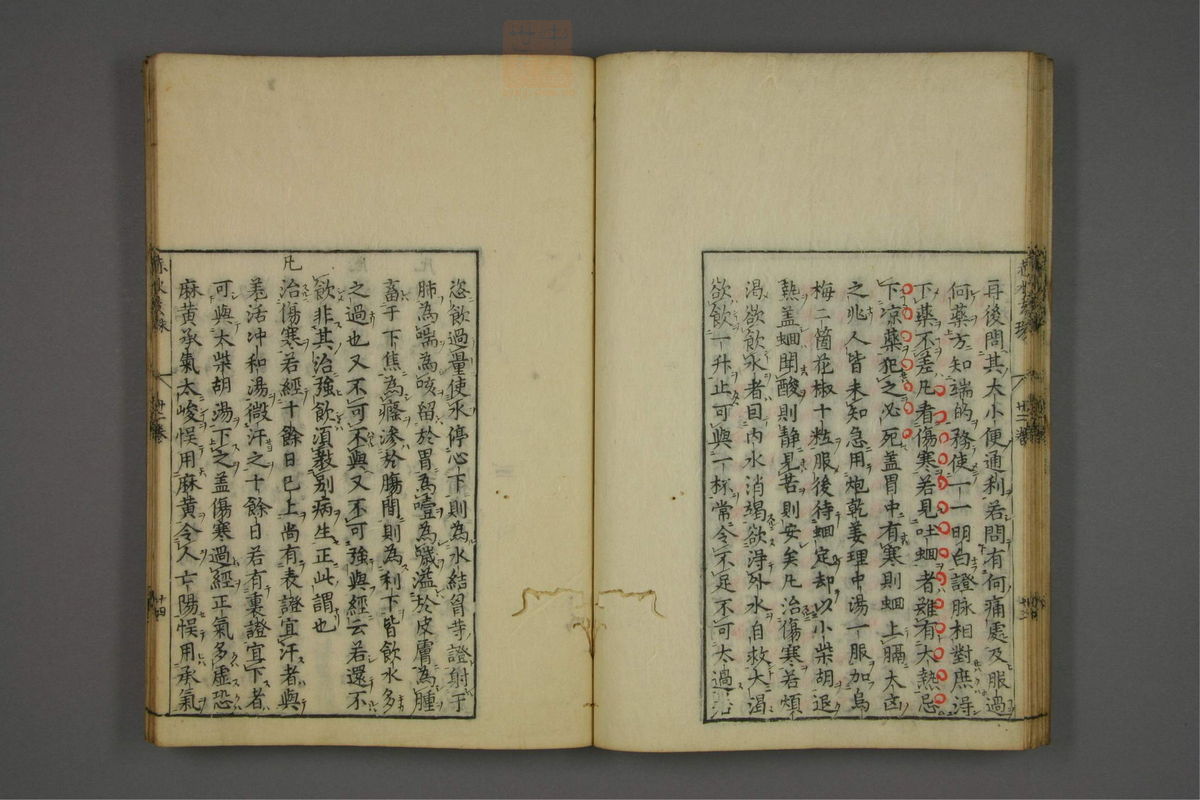 再後問其大小便通利若問有何痛處及服過
何藥方知端的務使一一明白證脉相對庶淂
下藥不差凡看傷寒若見吐蛔者雖有大熱忌
下凉藥犯之必死蓋胃中有寒則蛔上膈大凶
之兆人皆未知急用炮乾姜理中湯一服加烏
梅二箇花椒十粒服後待蛔定却以小柴胡退
熱盖蛔聞酸則静見苦則安矣凡治傷寒若煩
渴欲飲水者因内水消竭欲淂外水自救大渴
欲飲一升止可與一杯常令不足不可太過若
恣飲過量使水停心下則為水結胷等證射于
肺為喘為咳留於胃為噎為噦溢於皮膚為腫
畜于下焦為癃滲於腸間則為利下皆飲水多
之過也又不可不與又不可強與經云若還不
飲非其治強飲須教别病生正此謂也
凡治傷寒若經十餘日已上尚有表證宜汗者與
羌活冲和湯微汗之十餘日若有裏證宜下者
可與大柴胡湯下之盖傷寒過經正氣多虚恐
麻黄承氣太峻悮用麻黄令人亡陽悮用承氣
廿二卷
十四